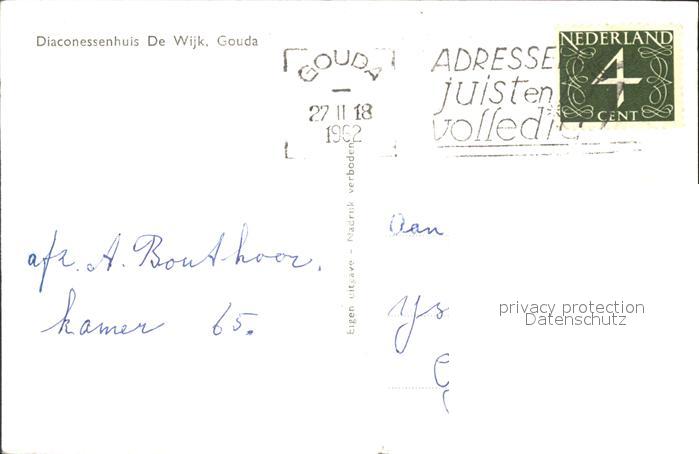 Diaconessenhuis De Wijk, Gouda
GOUDA
27 II 18
1962
ADRESSE
juist en
volledig
NEDERLAND
4
CENT
Eigen uitgave - Nadruk verboden
afz. A. Bouthoor.
kamer 65.
Aan
Ys
privacy protection
Datenschutz